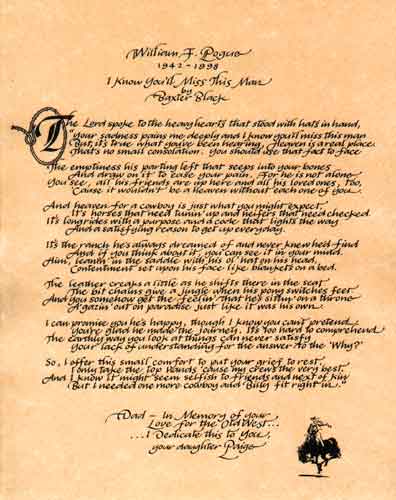 William F. Pogue
1942 - 1998
I Know You'll Miss This Man
by
Baxter Black
The Lord spoke to the heavy hearts that stood with hats in hand,
"Your sadness pains me deeply and I know you'll miss this man
But, it's true what you've been hearing, Heaven is a real place.
That's no small consolation. You should use that fact to face
The emptiness his parting left that seeps into your bones
And draw on it to ease your pain. For he is not alone
You see, all his friends are up here and all his loved ones, too,
'Cause it wouldn't be a heaven without each one of you.
And heaven for a cowboy is just what you might expect.
It's horses that need tunin' up and heifers that need checked
It's long rides with a purpose and a code that lights the way
And a satisfying reason to get up everyday.
It's the ranch he's always dreamed of and never knew he'd find
And if you think about it, you can see it in your mind.
Him, leanin' in the saddle with his ol' hat on his head,
Contentment set upon his face like blankets on a bed.
The leather creaks a little as he shifts there in the seat
The bit chains give a jingle when his pony switches feet
And you somehow get the feelin' that he's sittin' on a throne
A'gazin' out on paradise just like it was his own.
I can promise you he's happy, though I know you can't pretend
You're glad he made the journey. It's too hard to comprehend
The earthly way you look at things can never satisfy
Your lack of understanding for the answer to the 'Why?'
So, I offer this small comfort to put your grief to rest,
I only take the top hands 'cause my crew's the very best.
And I know it might seem selfish to friends and next of kin
But I needed one more cowboy and Billy fit right in.
Dad - In Memory of your
Love for the Old West...
...I Dedicate this to You,
your daughter Paige